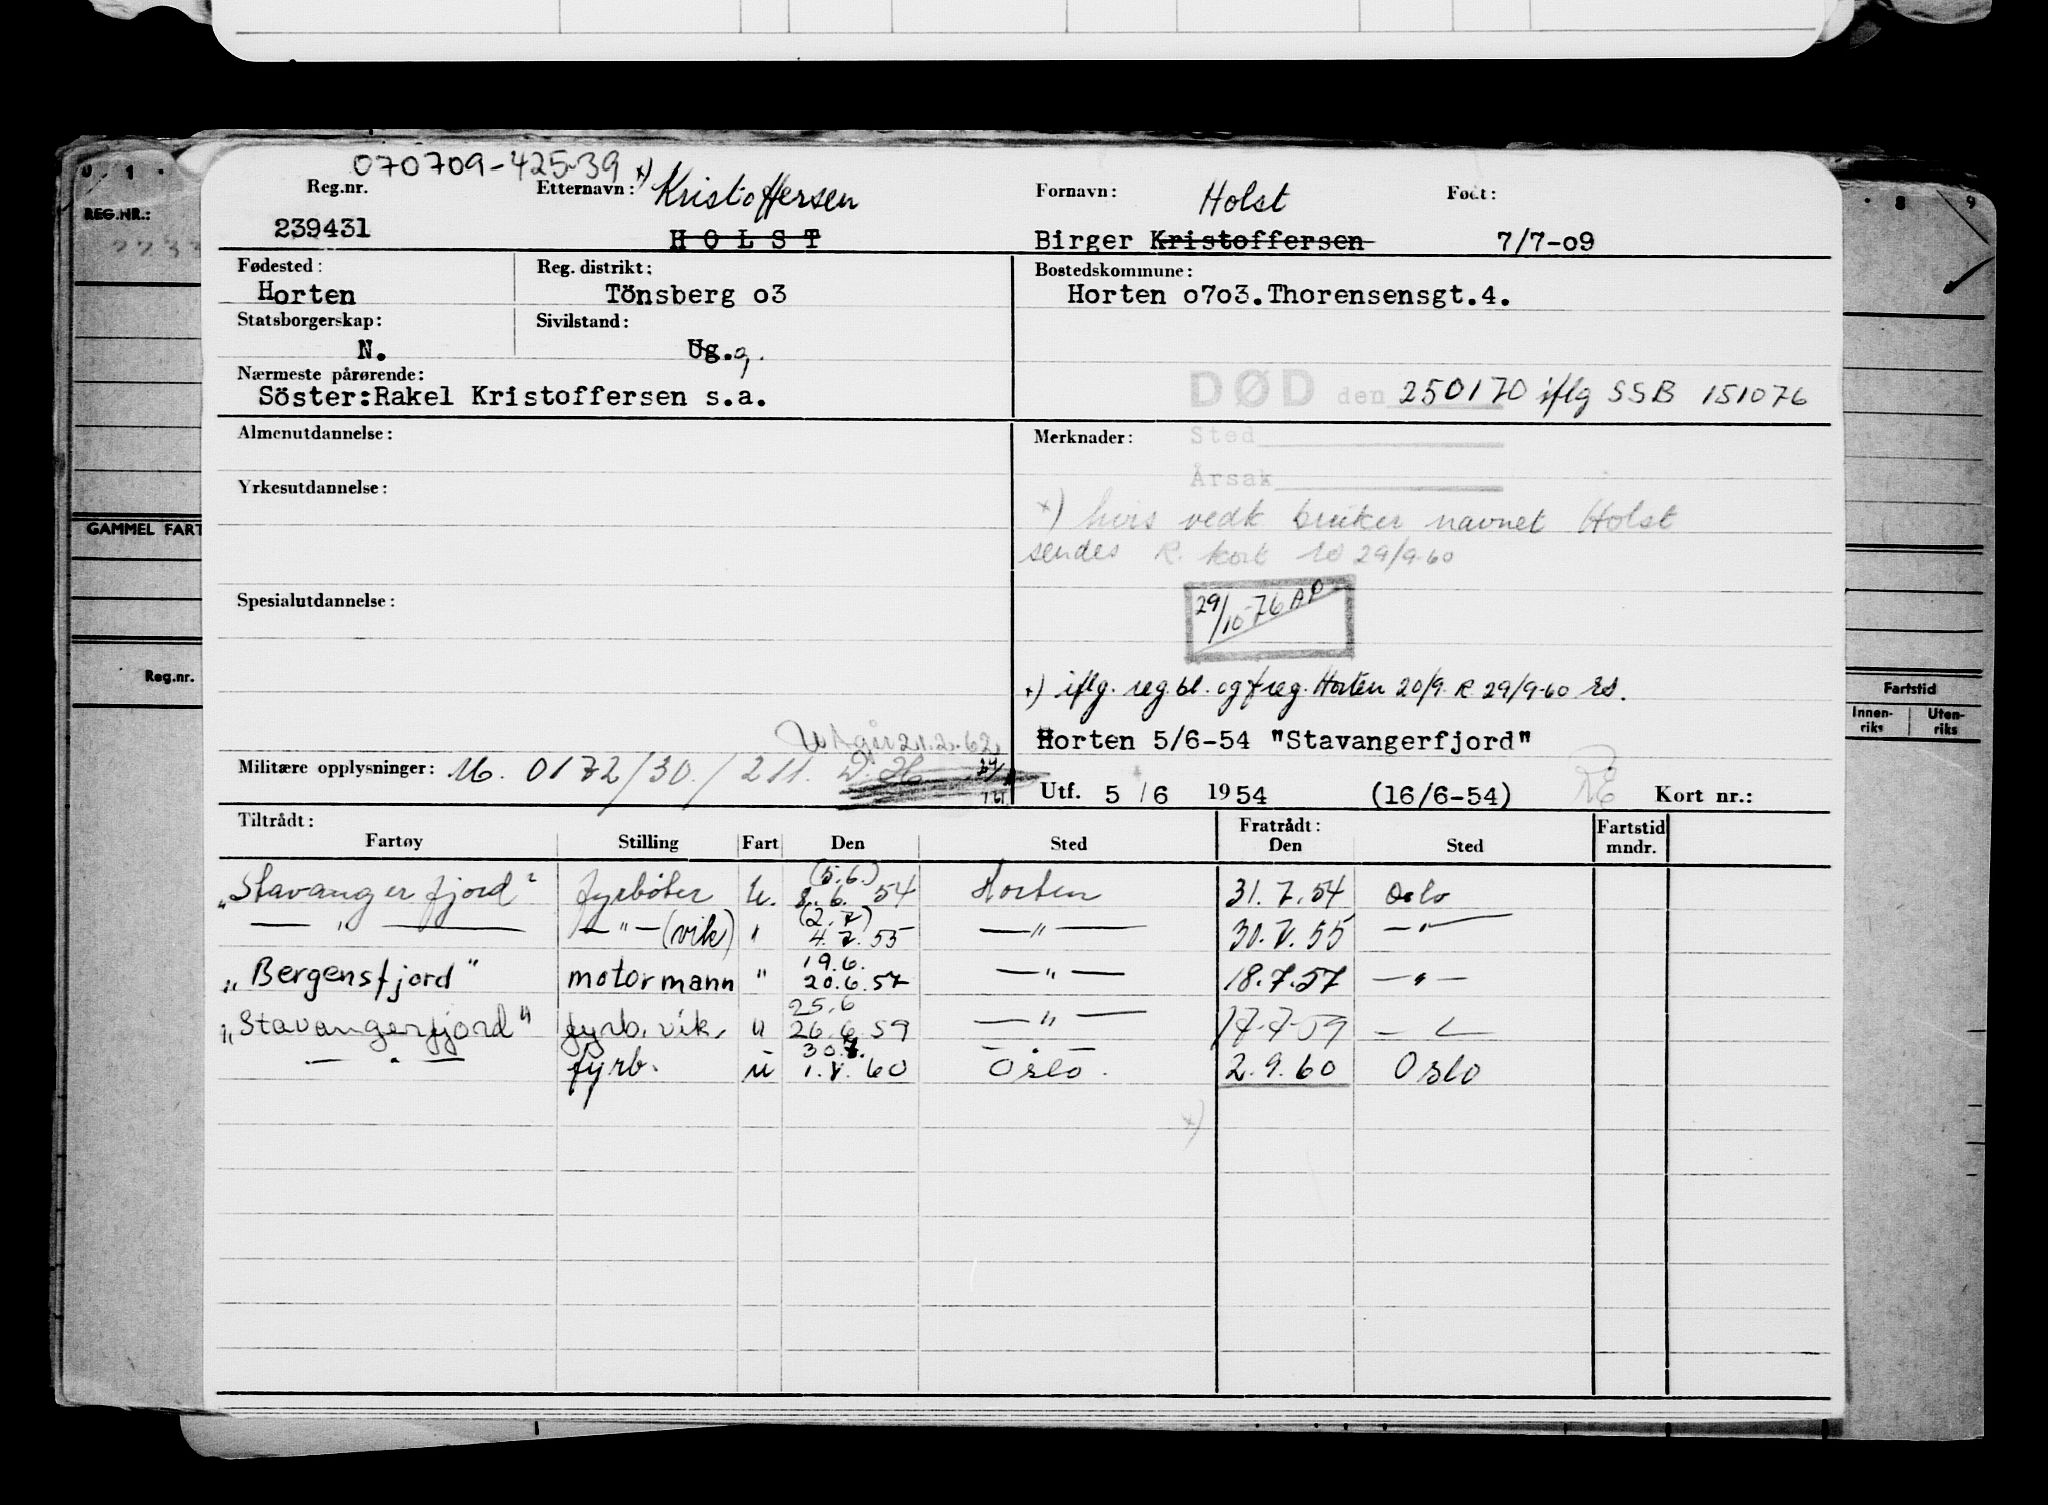 070709-425-39
Reg.nr. Etternavn: x) Kristoffersen Fornavn: Holst Født:
239431 HOLST Birger Kristoffersen 7/7-o9
Fødested: Reg. distrikt: Bostedskommune:
Horten Tönsberg o3 Horten o7o3.Thorensensgt.4.
Statsborgerskap: Sivilstand:
N. Ug. g.
Nærmeste pårørende:
Söster:Rakel Kristoffersen s.a.
DØD den 250170 iflg SSB 151076
Almenutdannelse: Merknader: Sted
Årsak
Yrkesutdannelse:
x) hvis vedk bruker navnet Holst
sendes R. kort 29/9-60
Spesialutdannelse:
29/10-76 AP
x) iflg. reg.bl. og freg. Horten 20/9. R 29/9-60
Utgår 21.2.62
Horten 5/6-54 "Stavangerfjord"
Militære opplysninger: M. 0172/30./211.
Utf. 5/6 1954 (16/6-54) Kort nr.:
Tiltrådt: Fratrådt: Fartstid
Fartøy Stilling Fart Den Sted Den Sted mndr.
(5.6.)
"Stavangerfjord" fyrbøter U. 8.6. 54 Horten 31.7.54 Oslo
(2.7)
— " — — " — (vik) " 4.7.55 — " — 30.7.55 — " —
19.6.
"Bergensfjord" motormann " 20.6.57 — " — 18.7.57 — " —
25.6
"Stavangerfjord" fyrb. vik. " 26.6.59 — " — 17-7-59 — " —
30.7.
— " — fyrb. u 1.8.60 Oslo. 2.9.60 Oslo
x)
REG.NR.:
GAMMEL FART
Reg.nr.
8 9
Fartstid
Innen-riks Uten-riks